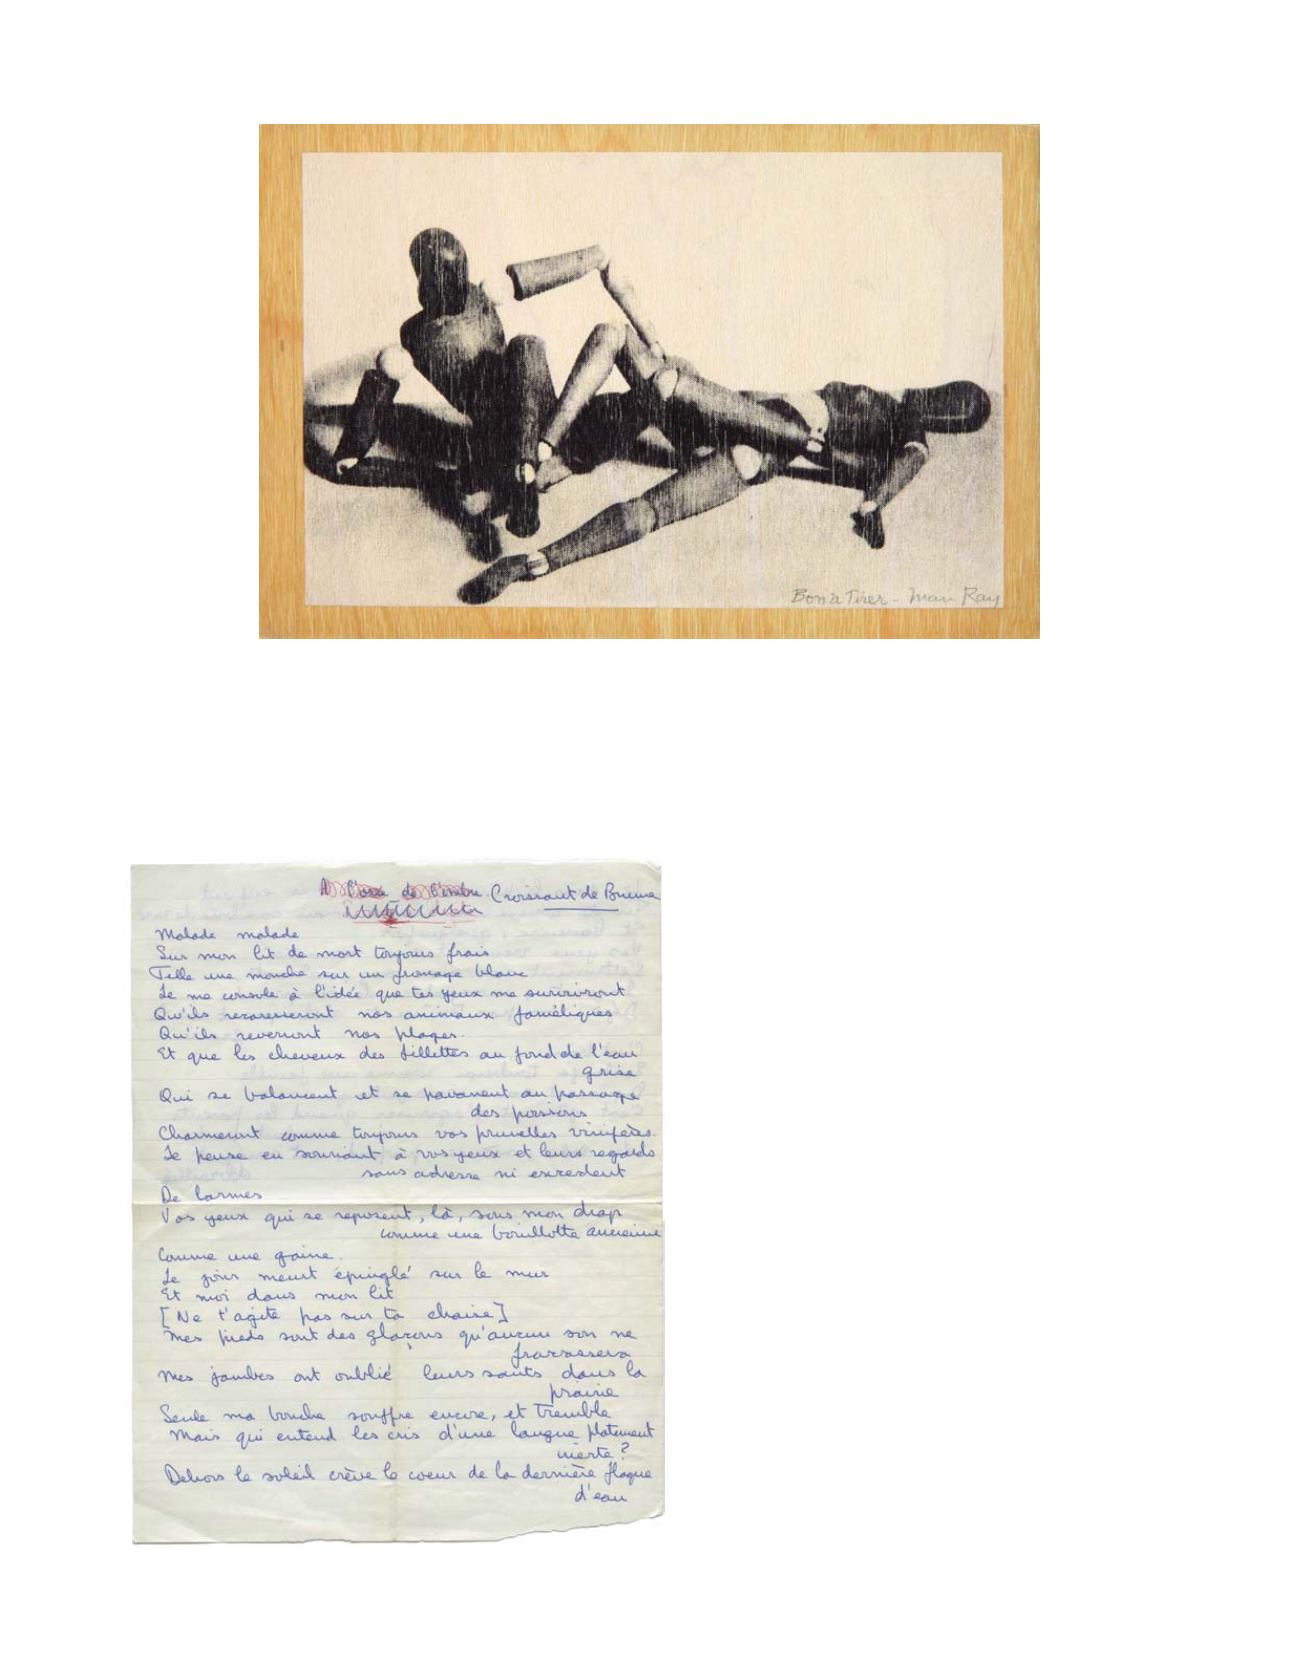 Bon à Tirer - Man Ray
A l'orée de l'ombre Croissant de Brume
Malade malade
Sur mon lit de mort toujours frais
Telle une mouche sur un fromage blanc
Je me console à l'idée que tes yeux me survivront
Qu'ils recaresseront nos animaux faméliques
Qu'ils reverront nos plages.
Et que les cheveux des fillettes au fond de l'eau
grise
Qui se balancent et se pavanent au passage
des poissons
Charmeront comme toujours vos prunelles vinifères.
Je pense en souriant à vos yeux et leurs regards
sans adresse ni excédent
De larmes
Vos yeux qui se reposent, là, sous mon drap
comme une bouillotte ancienne
Comme une gaine.
Le jour meurt épinglé sur le mur
Et moi dans mon lit
[Ne t'agite pas sur ta chaise]
Mes pieds sont des glaçons qu'aucun son ne
fracassera
Mes jambes ont oublié leurs sauts dans la
prairie
Seule ma bouche souffre encore, et tremble
Mais qui entend les cris d'une langue platement
inerte?
Dehors le soleil crève le coeur de la dernière flaque
d'eau